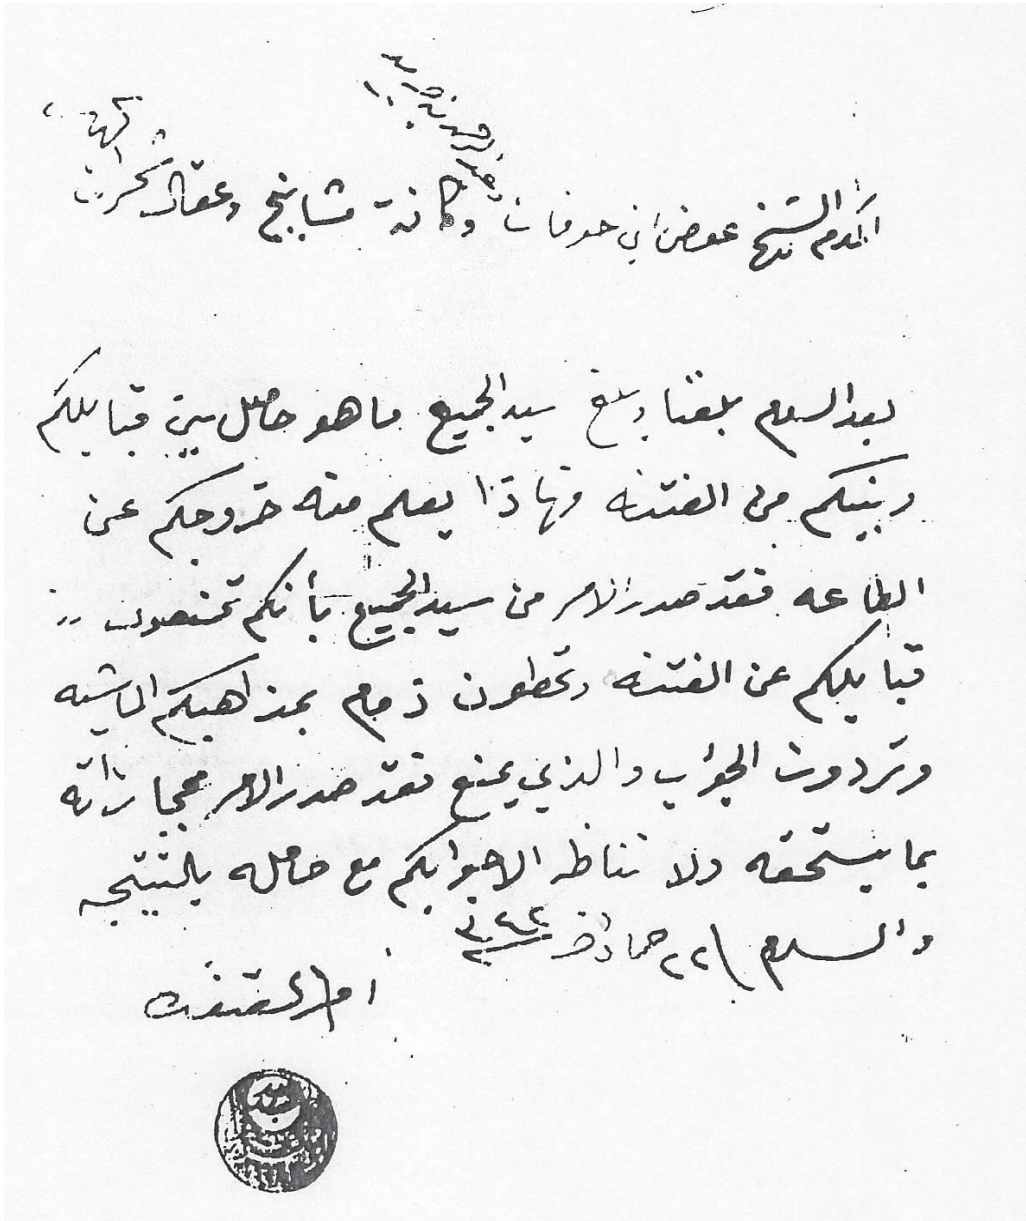 المكرم الشيخ عوض ابن حوفان وكافة مشايخ وعقال
بعد السلام بلغنا وبلغ سيد الجميع ما هو حاصل بين قبايلكم
وبينكم من الفتنه فهاذا يعلم منه خروجكم عن
الطاعه فقد صدر الامر من سيد الجميع بأنكم تمنعون
قبايلكم عن الفتنه وتحطون ذمام بمذاهبكم الماشيه
وتردون الجواب والذي يمنع فقد صدر الامر بمجازاته
بما يستحقه ولا نناظر الا جوابكم مع حامله بالنتيجه
والسلام ٢٢ جماد
امير القنفذه